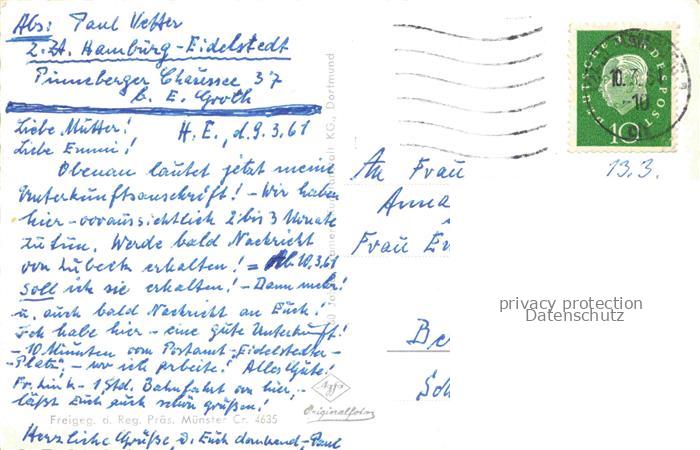 Abs: Paul Vetter
2. Zt. Hamburg-Eidelstedt
Pinneberger Chaussee 37
b. E. Groth
H. E., d. 9.3.61
Liebe Mutter!
Liebe Emmi!
Obenan lautet jetzt meine
Unterkunftsanschrift! - Wir haben
hier - voraussichtlich 2 bis 3 Monate
zu tun. Werde bald Nachricht
von Lübeck erhalten! = Ab 10.3.61
soll ich sie erhalten! - Dann mehr!
u. auch bald Nachricht an Euch!
Ich habe hier - eine gute Unterkunft!
- 10 Minuten vom Postamt - Eidelstedter -
- Platz, - wo ich arbeite! Alles Gute!
Fr. Link - 1 Std. Bahnfahrt von hier, -
läßt Euch auch schön grüßen!
Freigeg. d. Reg. Präs. Münster Cr. 4635
Herzliche Grüße v. Euch dankend - Paul
KG., Dortmund
Agfa
Originalfoto
DEUTSCHE BUNDESPOST
10
10.3.61
-10
13.3.
An Frau
Anna
Frau
Be
privacy protection
Datenschutz